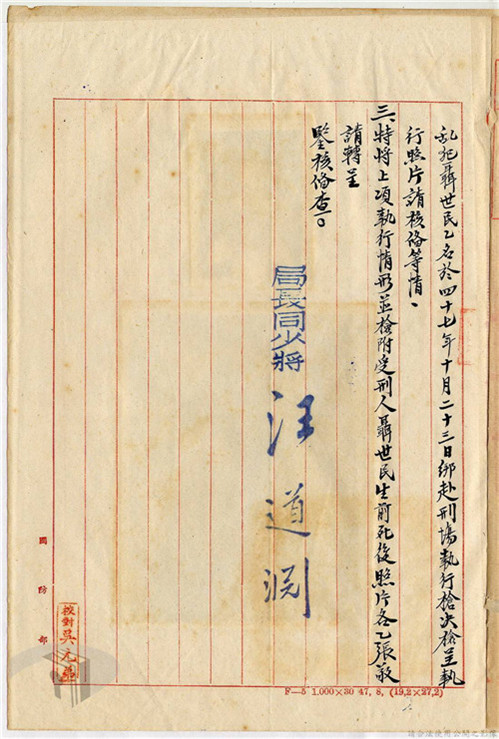 乱犯聶世民乙名於四十七年十月二十三日綁赴刑場執行槍决檢呈執
行照片請核俻等情、
三、特將上項執行情形並檢附受刑人聶世民生前死後照片各乙張敬
請轉呈
鑒核俻查。
局長同少將
汪道淵
國防部
校對吳元
F—5 1.000×30 47. 8. (19.2×27.2)
請合法使用公開之影像